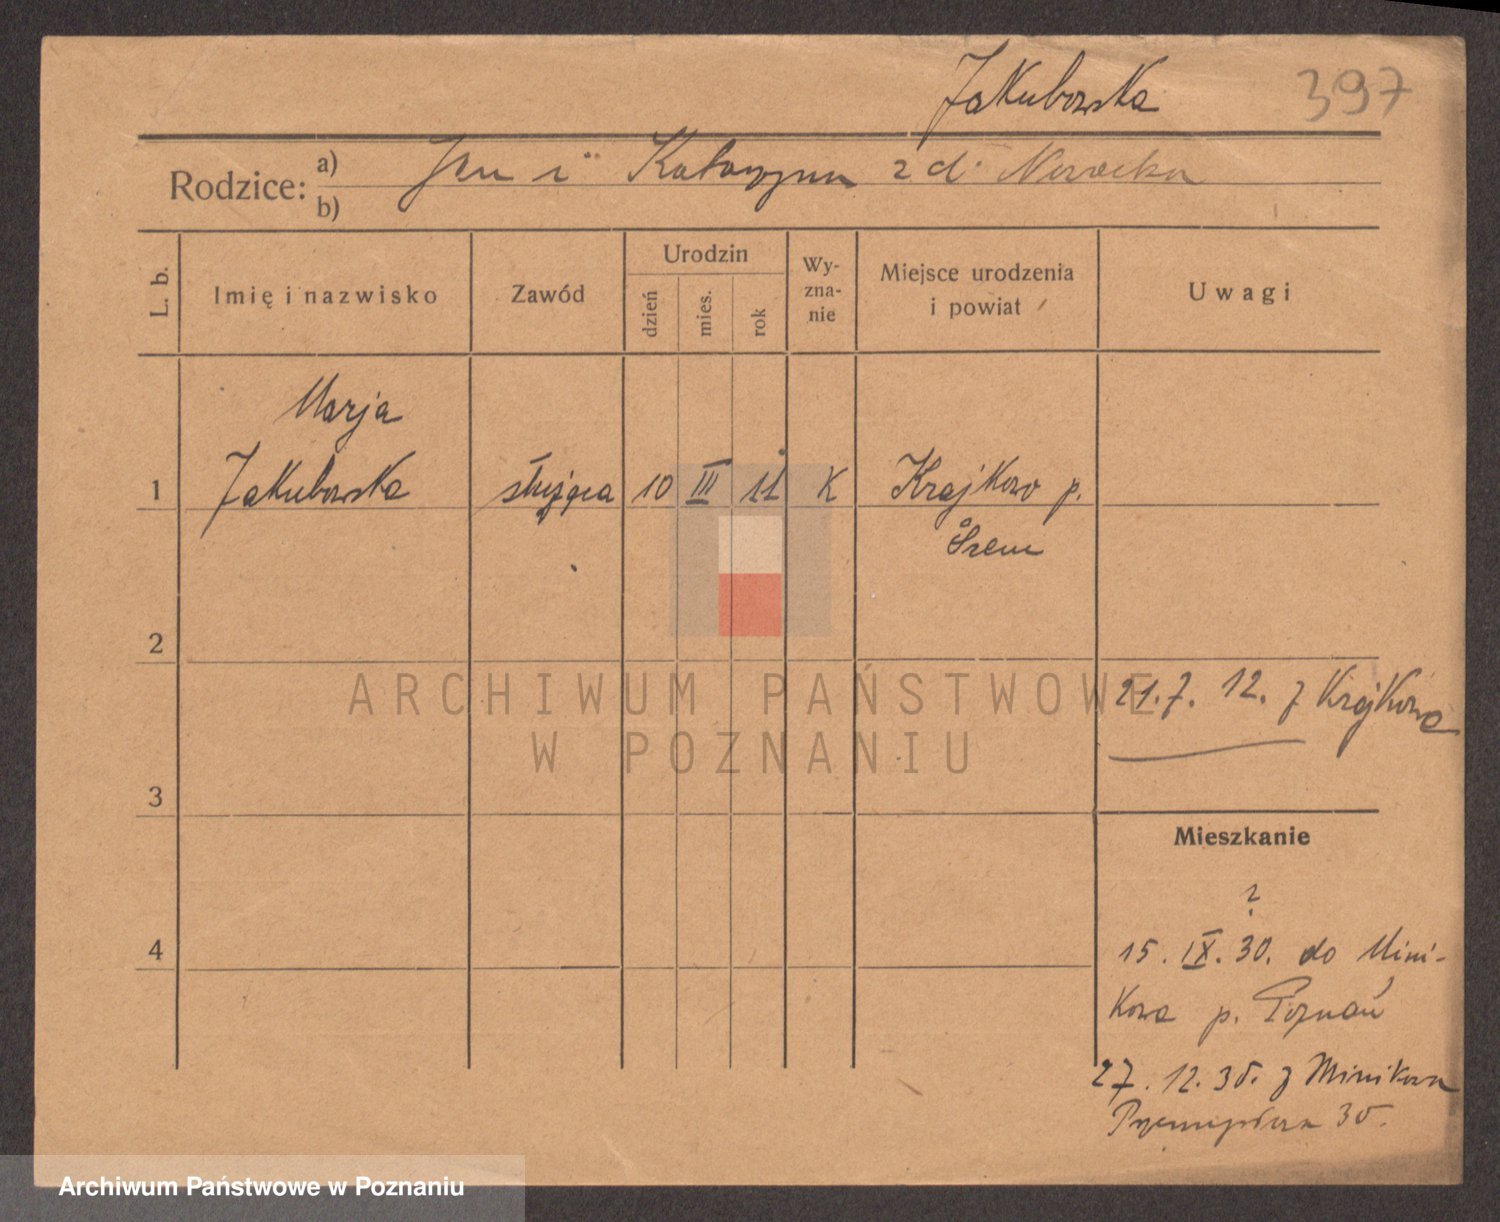 Jakubowska 397
Rodzice: a) Jan i Katarzyna z d. Nowicka
b)
L. b. Imię i nazwisko Zawód Urodzin dzień mies. rok Wy-zna-nie Miejsce urodzenia i powiat Uwagi
Marja
1 Jakubowska służąca 10 III 11 K Krajkowo p.
Śrem
2
21.7. 12. z Krajkowa
3
Mieszkanie
?
4 15. IX. 30. do Mini-
kowa p. Poznań
27. 12. 30. z Minikowa
30.
ARCHIWUM PAŃSTWOWE
W POZNANIU
Archiwum Państwowe w Poznaniu